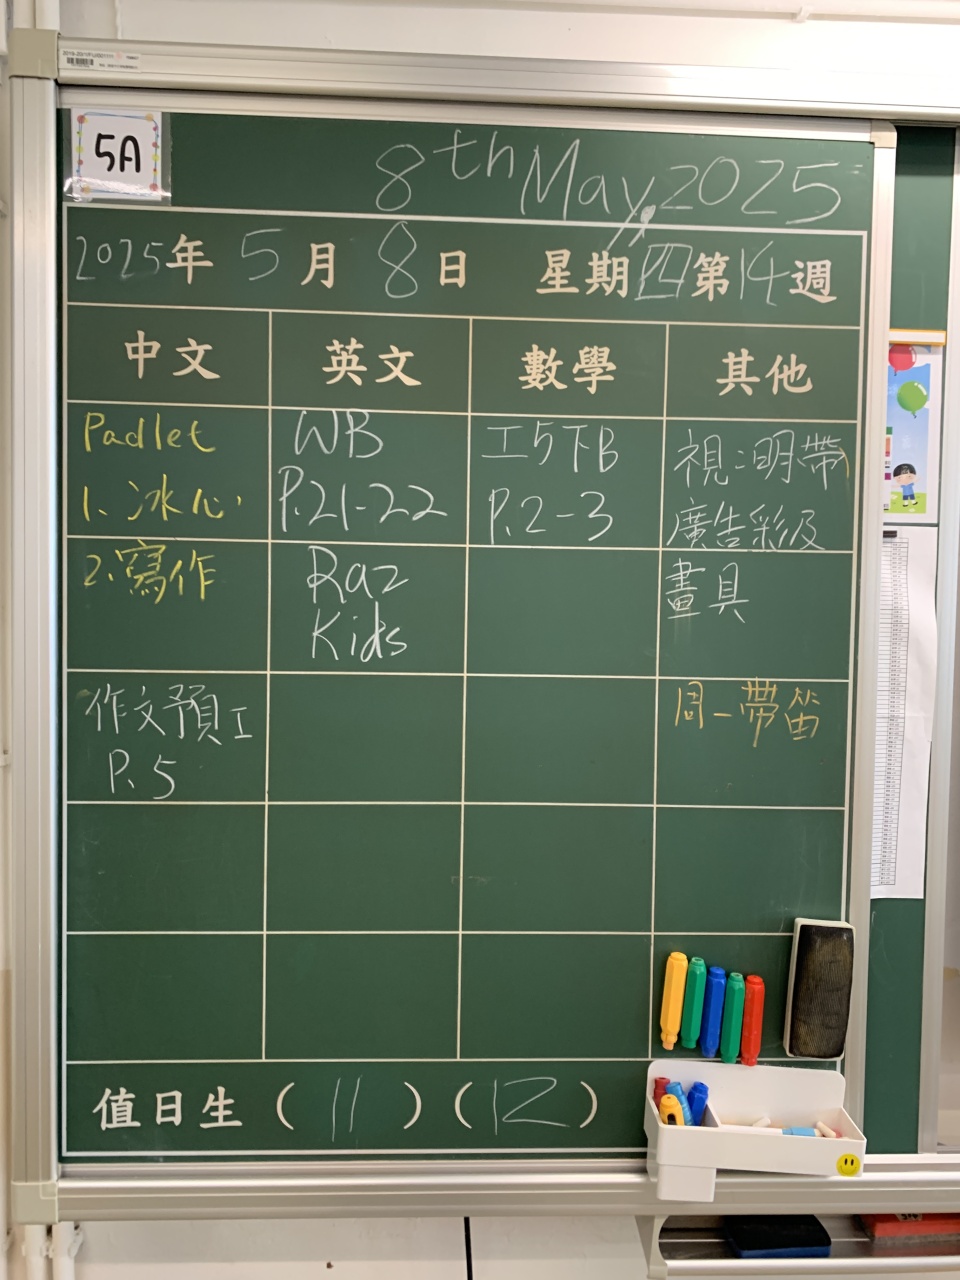 5A
8th May, 2025
2025年 5月 8日 星期四 第14週
中文 英文 數學 其他
Padlet
1. 冰心
2. 寫作
作文預工
P.5
WB
P.21-22
Raz
Kids
工5下B
P.2-3
視：明帶
廣告彩及
畫具
周一帶笛
值日生 ( 11 ) ( 12 )